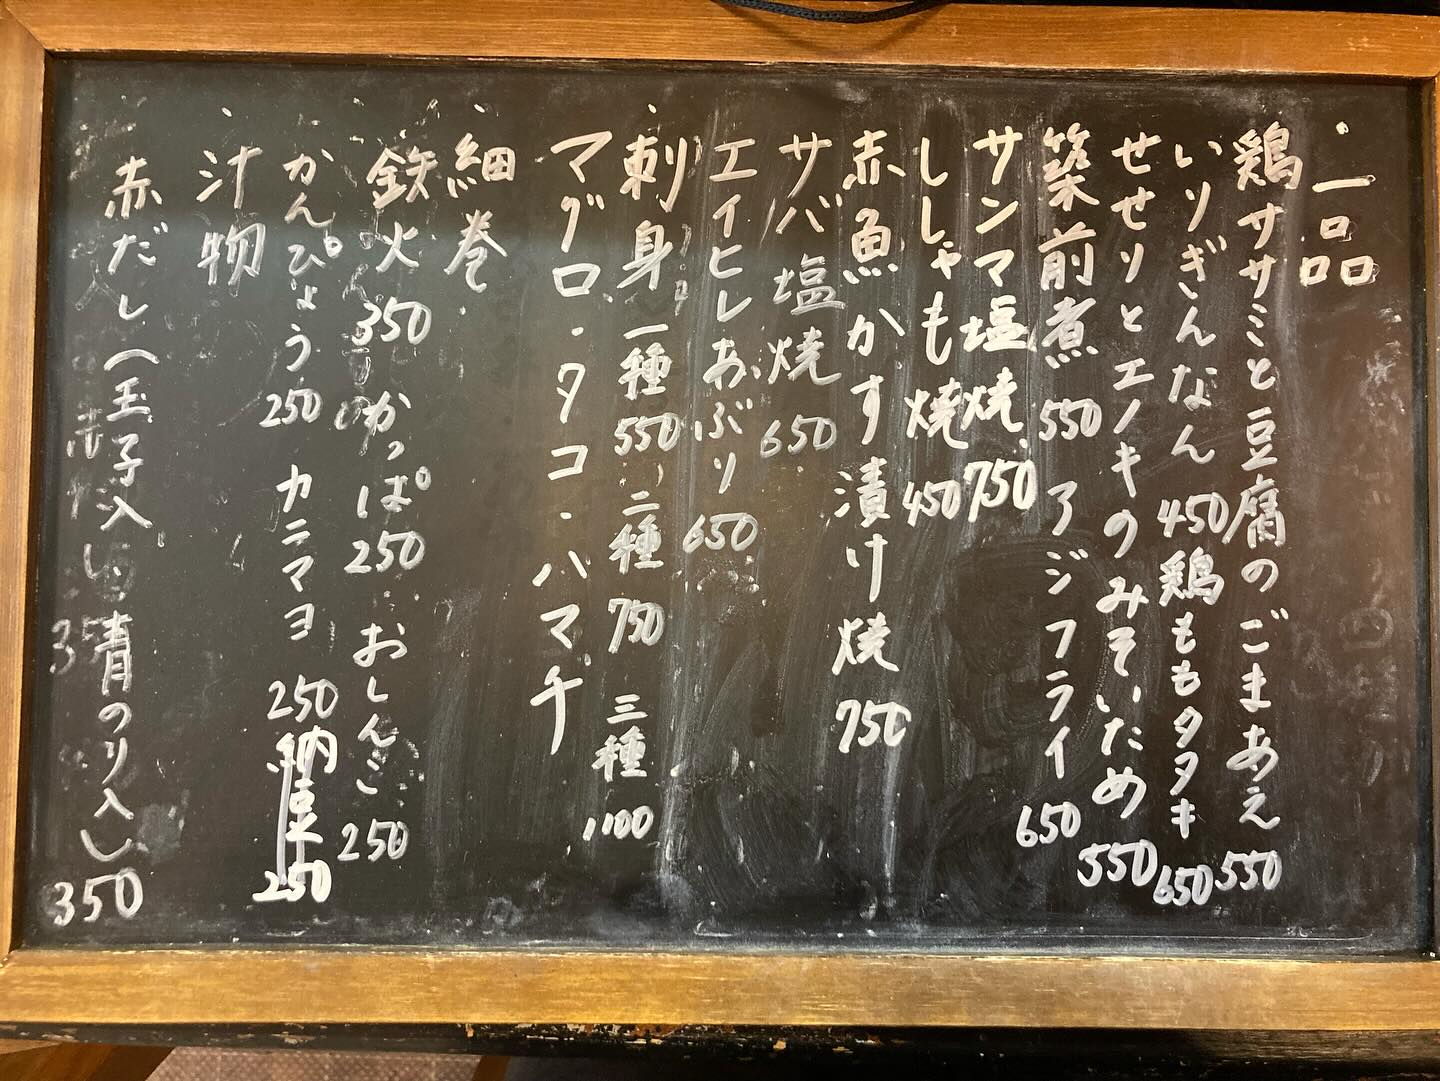 一品
鶏ササミと豆腐のごまあえ 550
いりぎんなん 450 鶏ももタタキ 650
せせりとエノキのみそいため 550
築前煮 550 アジフライ 650
サンマ塩焼 750
ししゃも焼 450
赤魚かす漬け焼 750
サバ塩焼 650
エイヒレあぶり 650
刺身 一種 550 二種 750 三種 1100
マグロ・タコ・ハマチ
細巻
鉄火 350 かっぱ 250 おしんこ 250
かんぴょう 250 カニマヨ 250 納豆 250
汁物
赤だし(玉子入し 青のり入し 350